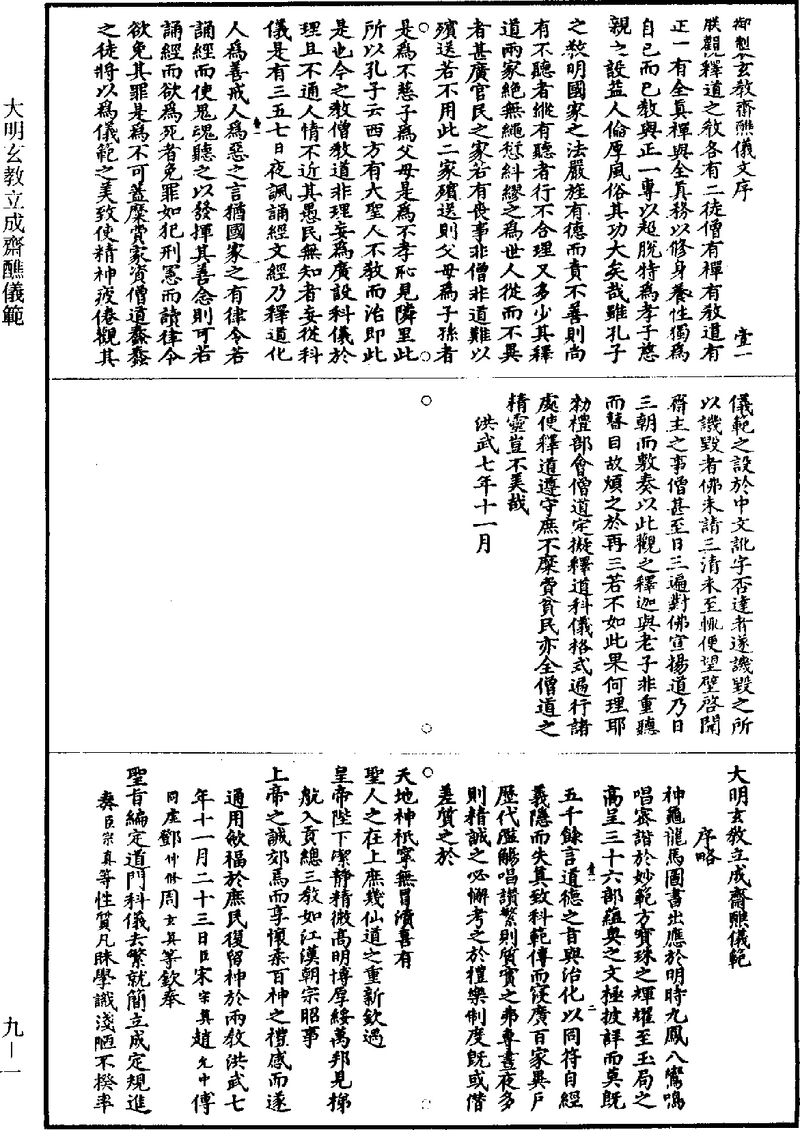 大明玄教立成齋醮儀範
九—一
御製玄教齋醮儀文序
壹一
朕觀釋道之教各有二徒僧有禪有教道有
正一有全真禪與全真務以修身養性獨為
自己而已教與正一專以超脫特為孝子慈
親之設益人倫厚風俗其功大矣哉雖孔子
之教明國家之法嚴旌有德而責不善則尚
有不聽者縱有聽者行不合理又多少其釋
道兩家絕無繩愆糾繆之為世人從而不異
者甚廣官民之家若有喪事非僧非道難以
殯送若不用此二家殯送則父母為子孫者
是為不慈子為父母是為不孝恥見隣里此
所以孔子云西方有大聖人不教而治即此
是也今之教僧教道非理妄為廣設科儀於
理且不通人情不近其愚民無知者妄從科
儀是有三五七日夜諷誦經文經乃釋道化
人為善戒人為惡之言猶國家之有律令若
誦經而使鬼魂聽之以發揮其善念則可若
誦經而欲為死者免罪如犯刑憲而讀律令
欲免其罪是為不可蓋糜費家資僧道蠢蠢
之徒將以為儀範之美致使精神疲倦觀其
儀範之設於中文訛字否達者遂譏毀之所
以譏毀者佛未請三清未至輒便望壁啓聞
齋主之事僧甚至日三遍對佛宣揚道乃日
三朝而敷奏以此觀之釋迦與老子非重聽
而瞽目故煩之於再三若不如此果何理耶
勑禮部會僧道定擬釋道科儀格式遍行諸
處使釋道遵守庶不糜費貧民亦全僧道之
精靈豈不美哉
洪武七年十一月
大明玄教立成齋醮儀範
序略
神龜龍馬圖書出應於明時九鳳八鸞鳴
唱寄諧於妙範方寶珠之輝耀至玉局之
高呈三十六部蘊奥之文極披詳而莫既
五千餘言道德之旨與治化以同符自經
義隱而失真致科範傳而寖廣百家異戶
歷代濫觴唱讚繁則質實之弗專晝夜多
則精誠之必懈考之於禮樂制度既或僭
差質之於
天地神祇寧無冒瀆善有
聖人之在上庶幾仙道之重新欽遇
皇帝陛下潔靜精微高明博厚綏萬邦見梯
航入貢總三教如江漢朝宗昭事
上帝之誠郊焉而享懷柔百神之禮感而遂
通用敏福於庶民復留神於兩教洪武七
年十一月二十三日臣宋宗真趙允中傅
同虛鄧仲脩周玄真等欽奉
聖旨編定道門科儀去繁就簡立成定規進
奏臣宗真等性質凡昧學識淺陋不揆率